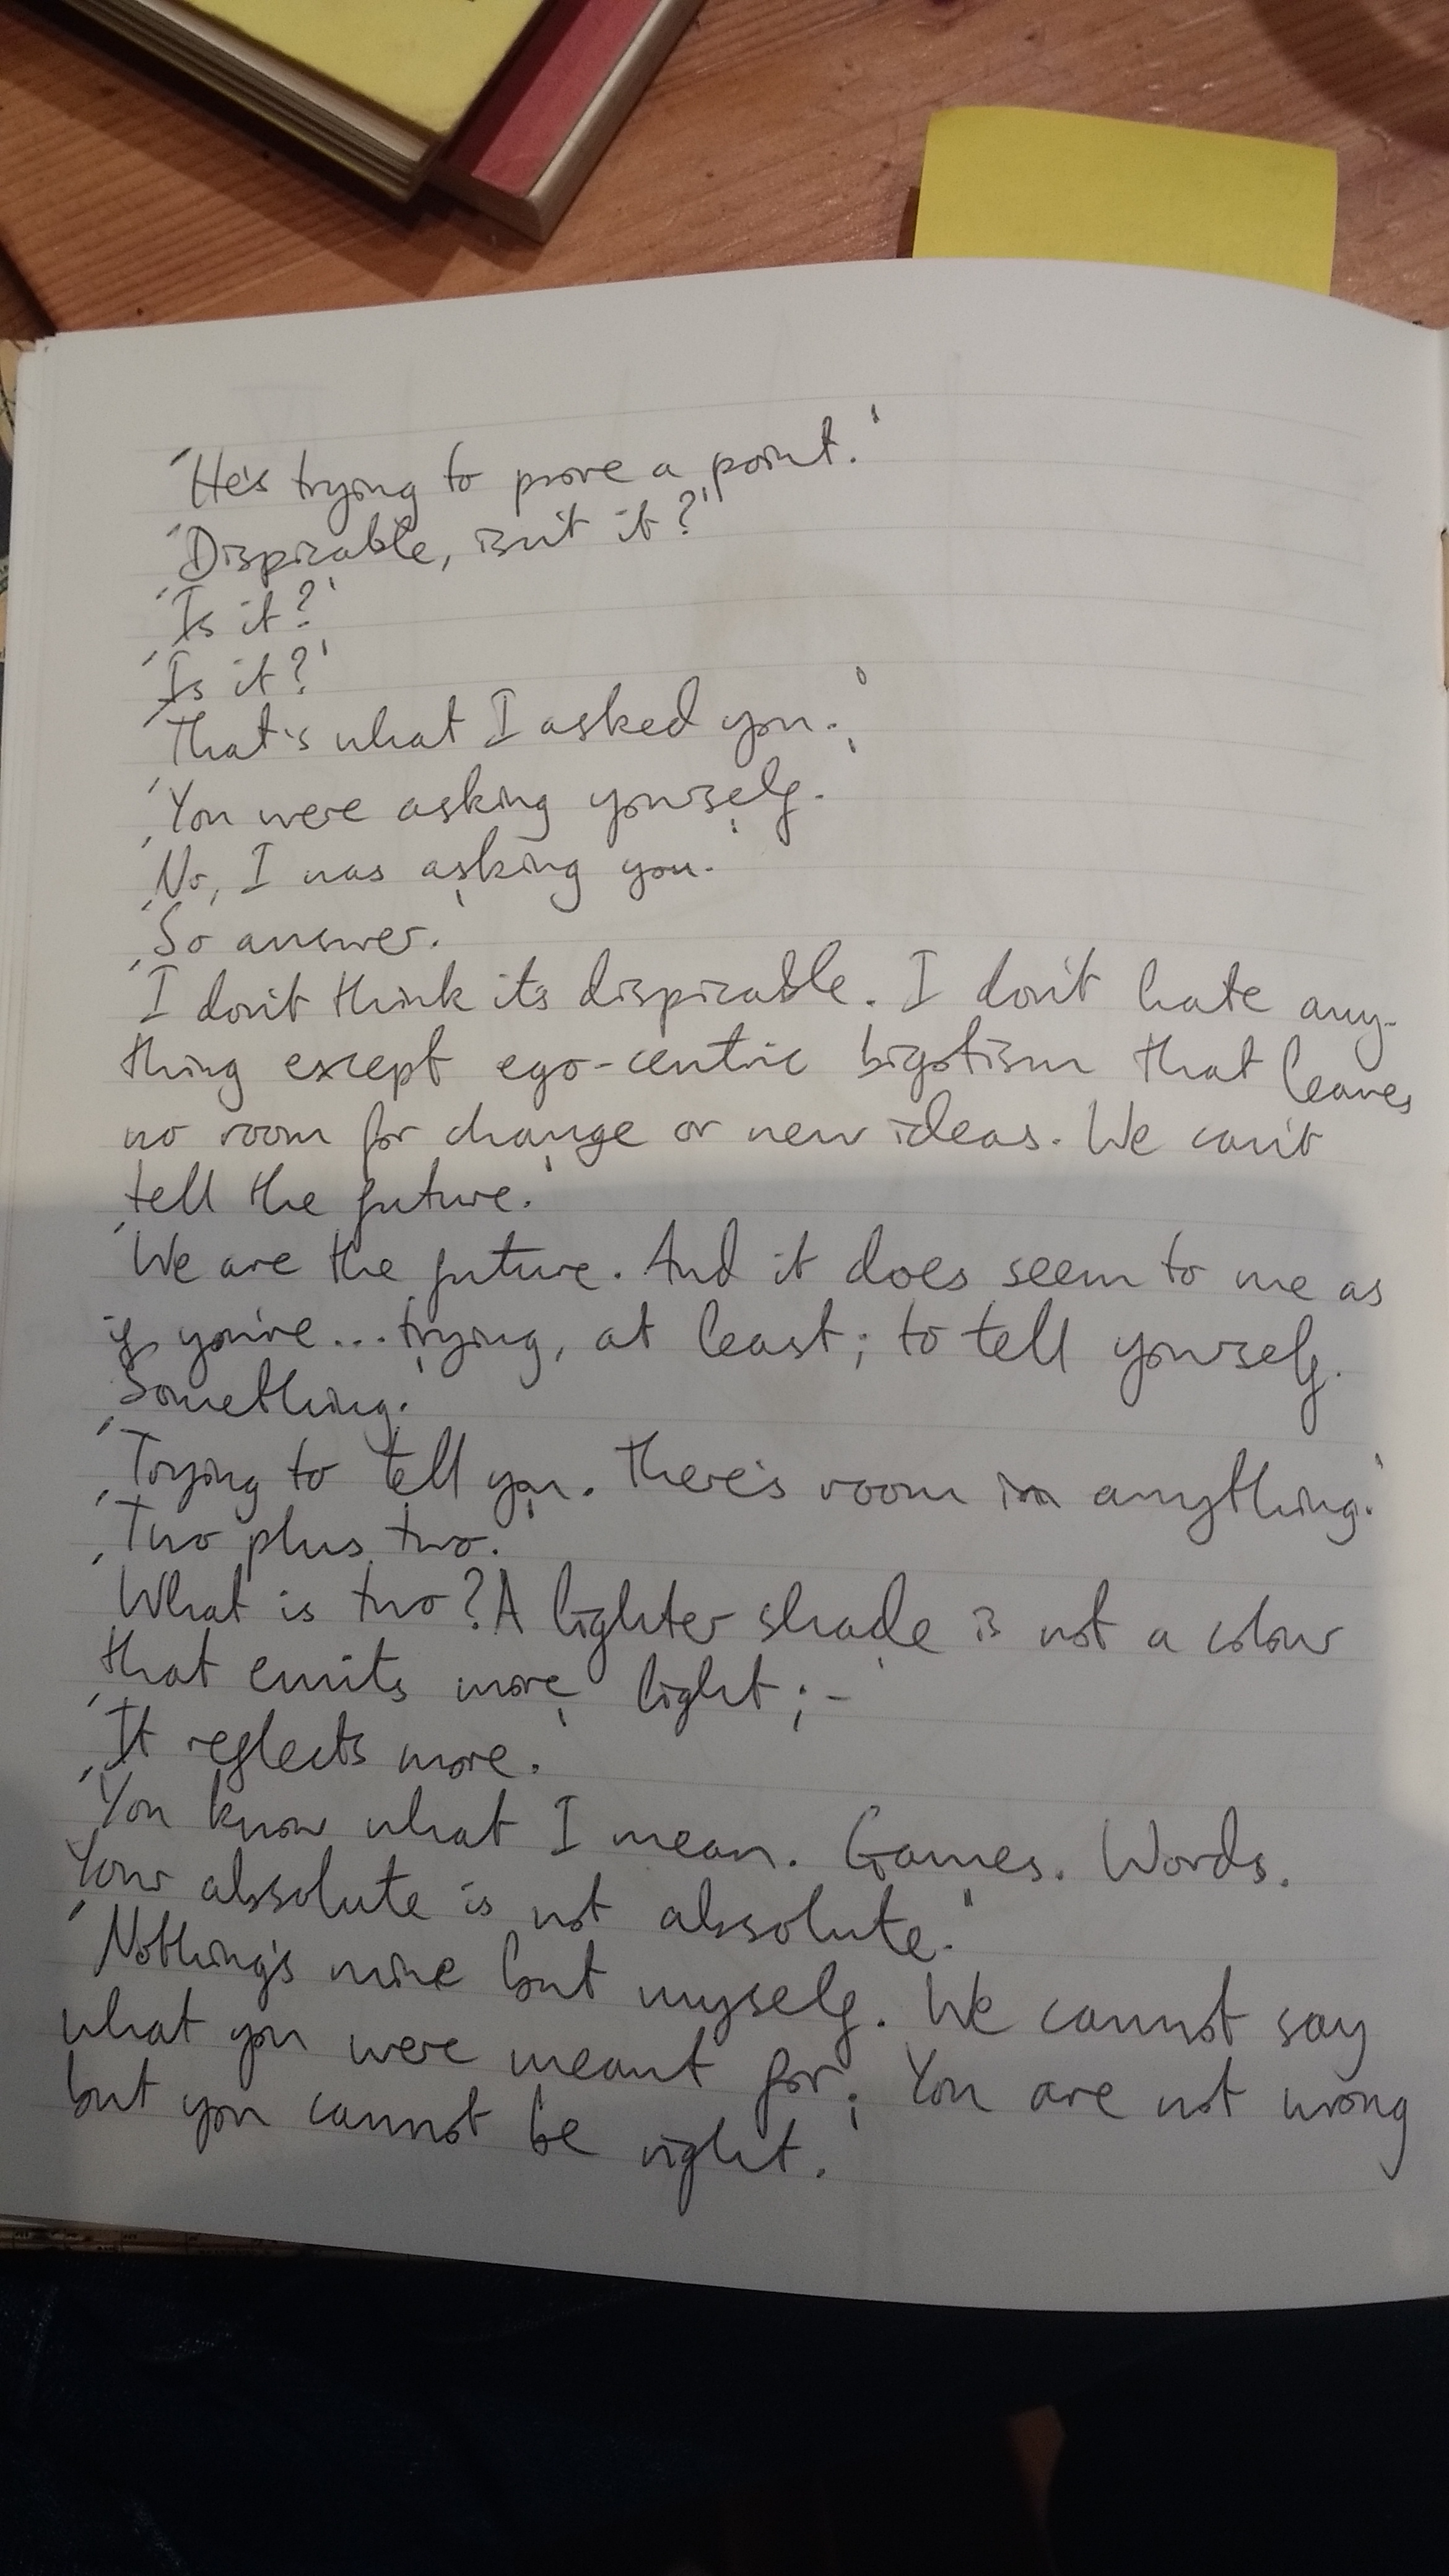 'He's trying to prove a point.'
'Dispicable, isn't it?'
'Is it?'
'Is it?'
'That's what I asked you.'
'You were asking yourself.'
'No, I was asking you.'
'So answer.'
'I don't think its dispicable. I don't hate any-
thing except ego-centric bigotism that leaves
no room for change or new ideas. We can't
tell the future.'
'We are the future. And it does seem to me as
if you're... trying, at least; to tell yourself.
Something.'
'Trying to tell you. There's room in anything.'
'Two plus two.'
'What is two? A lighter shade is not a colour
that emits more light; -'
'It reflects more.'
'You know what I mean. Games. Words.
Your absolute is not absolute.'
'Nothing's mine but myself. We cannot say
what you were meant for; You are not wrong
but you cannot be right.